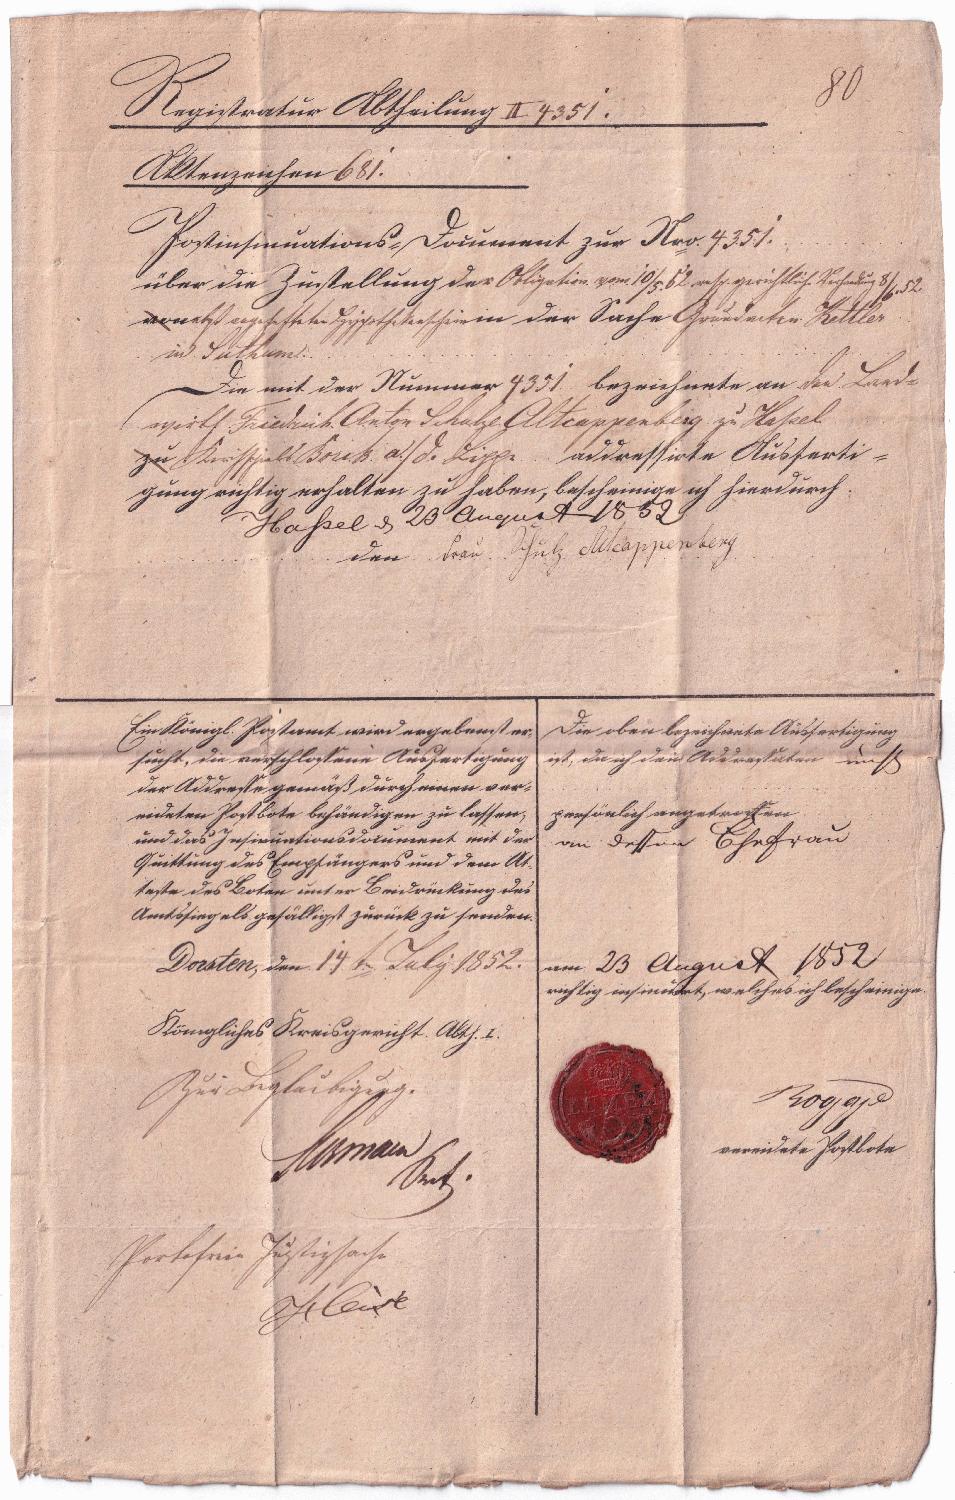 80
Registratur Abtheilung II 4351.
Aktenzeichen 681.
Postinsinuations-Document zur Nro. 4351.
über die Zustellung der Obligation vom 10/5 52 resp. gerichtlich. 8/6. 52.
in der Sache Grundacten Kettler
in
Die mit der Nummer 4351 bezeichnete an den Land-
wirth Friedrich Anton Schulze Altcappenberg zu Hassel
zu Kirchspiels Bork a./d. Lippe addressirte Ausferti-
gung richtig erhalten zu haben, bescheinige ich hierdurch.
Hassel d 23 August 1852
den Frau Schulz Altcappenberg
Ein Königl. Postamt wird ergebenst er-
sucht, die verschlossene Ausfertigung
der Addresse gemäß durch einen ver-
eideten Postbote behändigen zu lassen,
und das Insinuationsdocument mit der
Quittung des Empfängers und dem At-
teste des Boten unter Beidrückung des
Amtssiegels gefälligst zurück zu senden.
Dorsten, den 14 July 1852.
Königliches Kreisgericht. Abth. I.
Zur Beglaubigung.
Portofreie Justizsache
Die oben bezeichnete Ausfertigung
ist, da ich den Addressaten nicht
persönlich angetroffen
an dessen Ehefrau
am 23 August 1852
richtig insinuirt, welches ich bescheinige.
LÜNEN
Rogge
vereidete Postbote